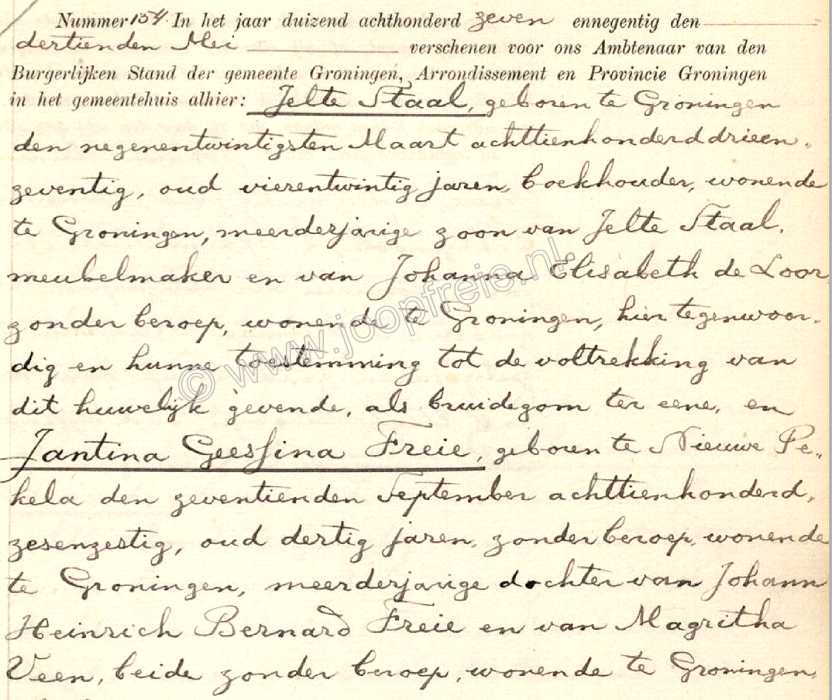 Nummer 154. In het jaar duizend achthonderd zeven ennegentig den
dertienden Mei verschenen voor ons Ambtenaar van den
Burgerlijken Stand der gemeente Groningen, Arrondissement en Provincie Groningen
in het gemeentehuis alhier: Jelte Staal, geboren te Groningen
den negenentwintigsten Maart achttienhonderd drieen-
zeventig, oud vierentwintig jaren, boekhouder, wonende
te Groningen, meerderjarige zoon van Jelte Staal,
meubelmaker en van Johanna Elisabeth de Loor,
zonder beroep, wonende te Groningen, hier tegenwoor-
dig en hunne toestemming tot de voltrekking van
dit huwelijk gevende, als bruidegom ter eene, en
Jantina Geessina Freie, geboren te Nieuwe Pe-
kela den zeventienden September achttienhonderd,
zesenzestig, oud dertig jaren, zonder beroep, wonende
te Groningen, meerderjarige dochter van Johann
Heinrich Bernard Freie en van Magritha
Veen, beide zonder beroep, wonende te Groningen,
© www.joopfreie.nl